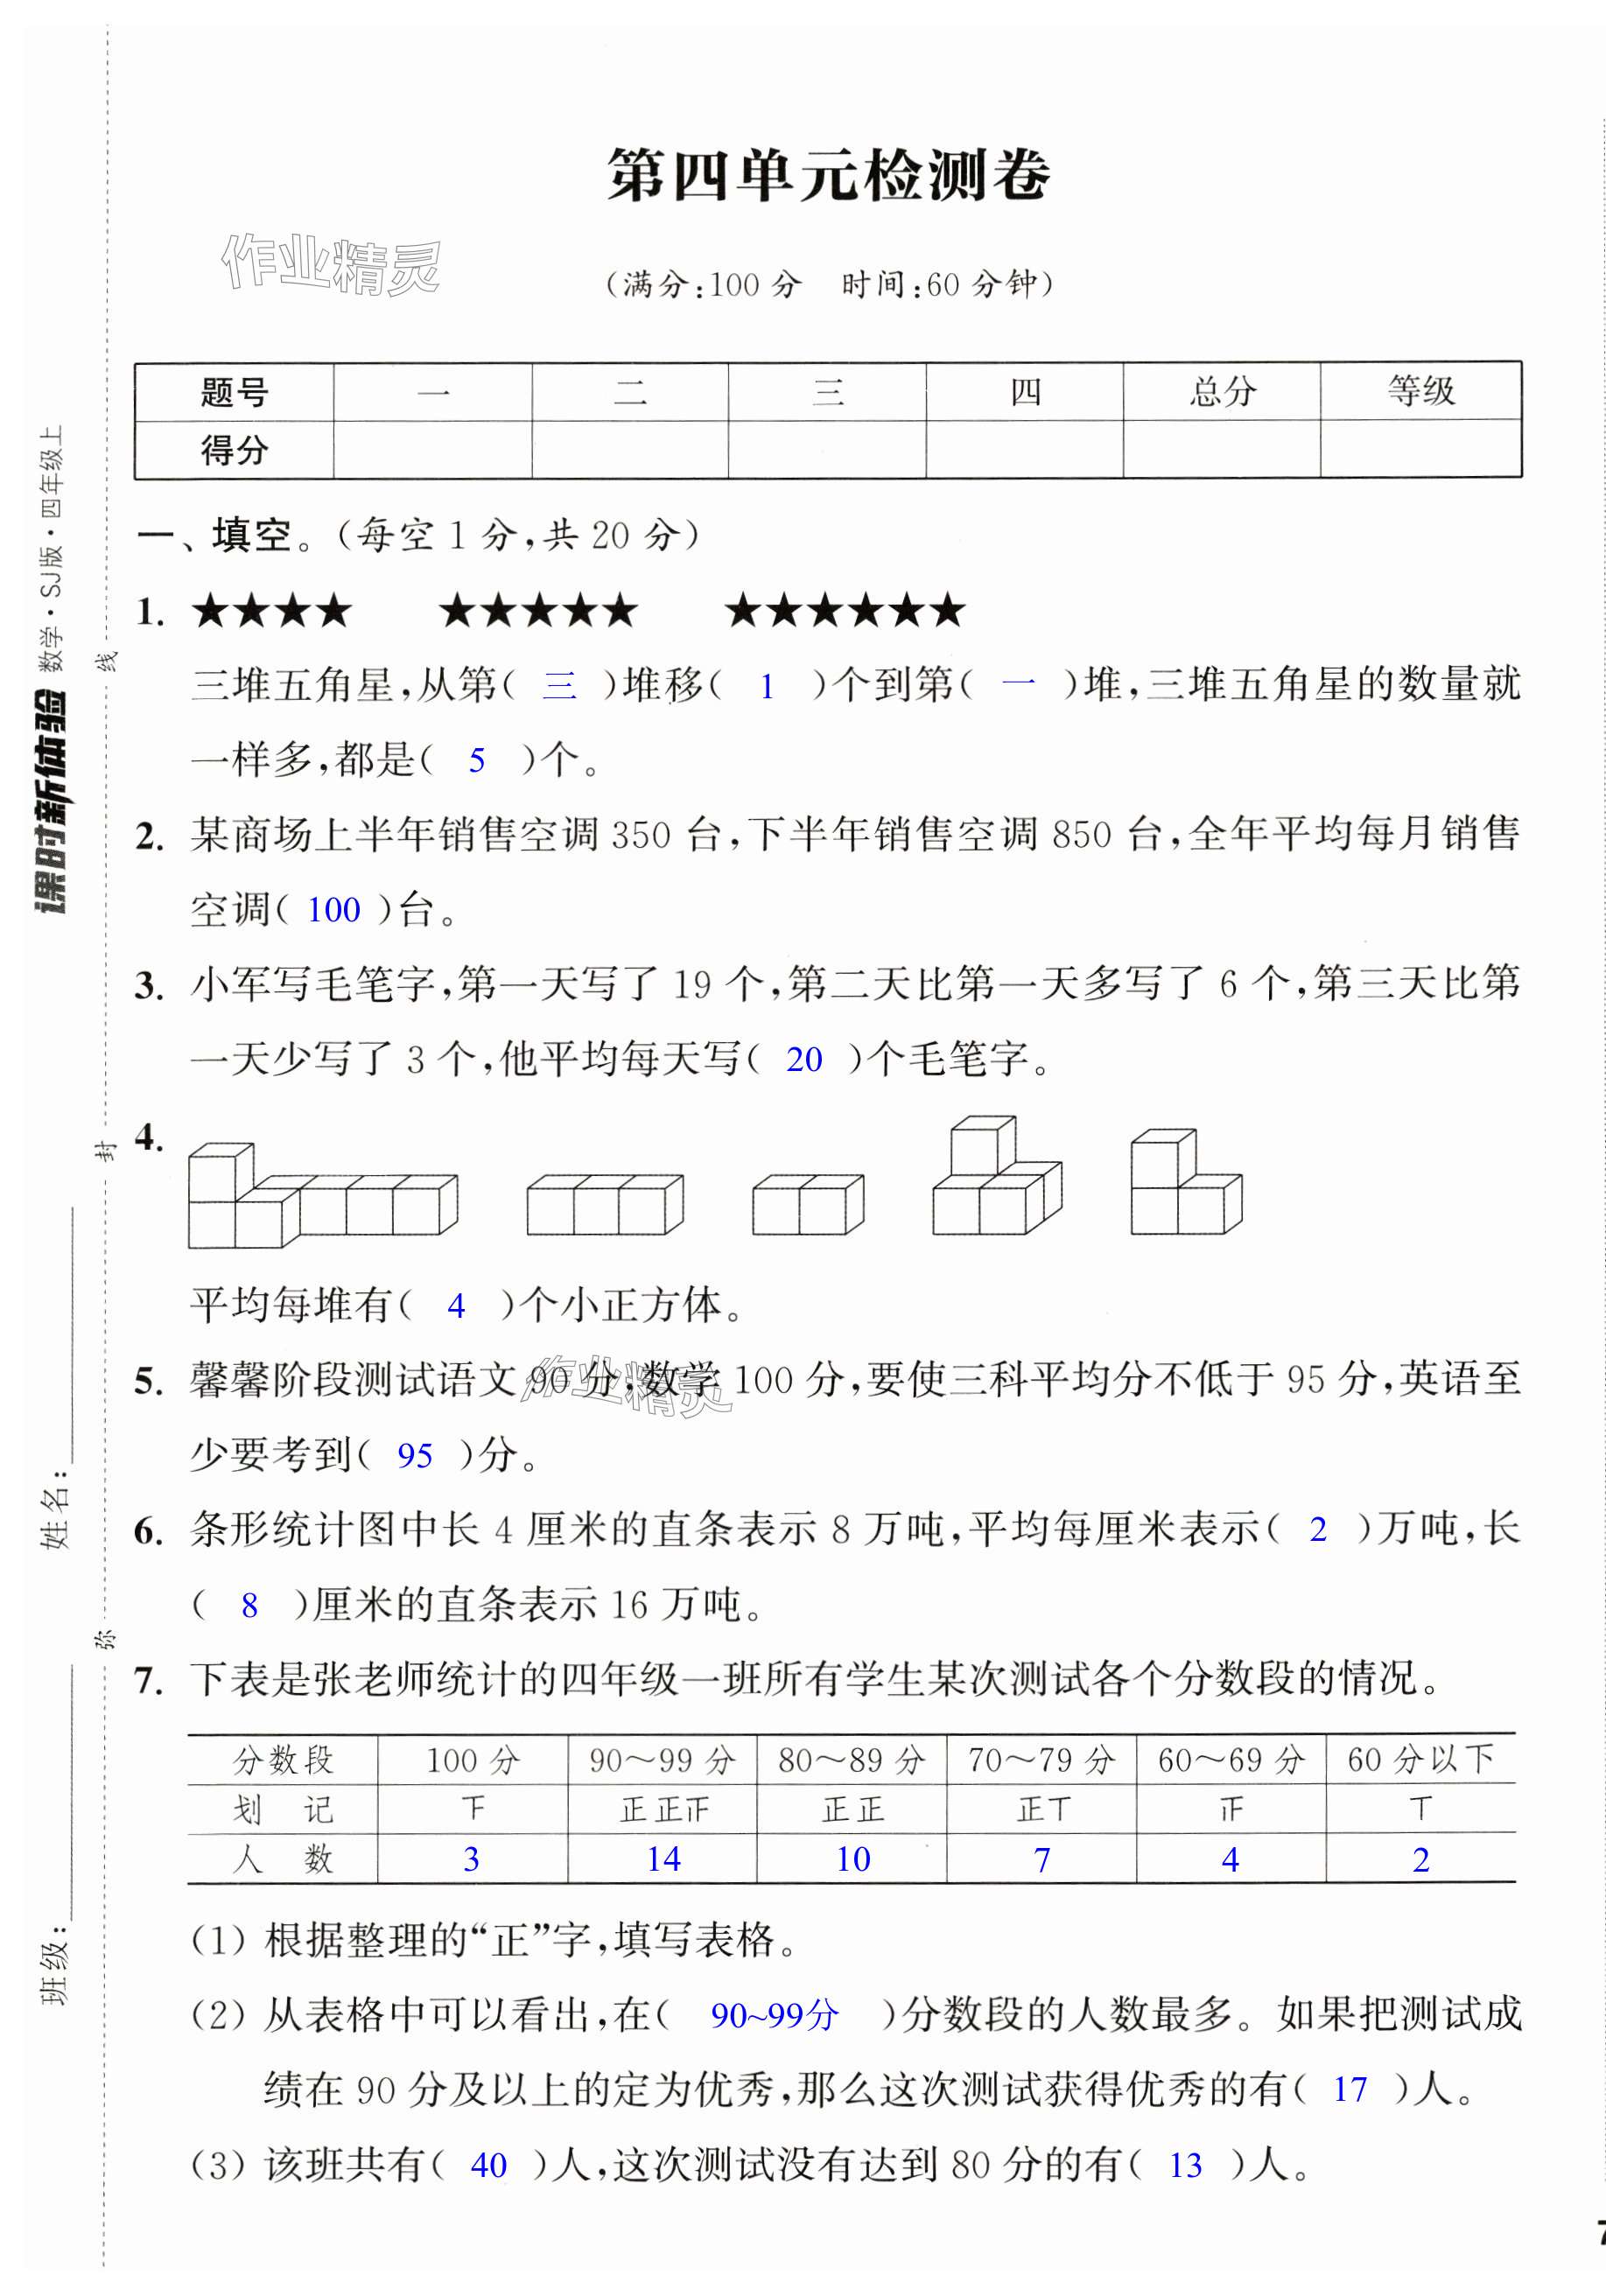 第四单元检测卷
作业精灵
（满分：100 分　时间：60 分钟）
题号　一　二　三　四　总分　等级
得分
一、填空。（每空 1 分，共 20 分）
1. ★★★★　★★★★★　★★★★★★
三堆五角星，从第（ 三 ）堆移（ 1 ）个到第（ 一 ）堆，三堆五角星的数量就
一样多，都是（ 5 ）个。
2. 某商场上半年销售空调 350 台，下半年销售空调 850 台，全年平均每月销售
空调（ 100 ）台。
3. 小军写毛笔字，第一天写了 19 个，第二天比第一天多写了 6 个，第三天比第
一天少写了 3 个，他平均每天写（ 20 ）个毛笔字。
4.
平均每堆有（ 4 ）个小正方体。
5. 馨馨阶段测试语文 90 分，数学 100 分，要使三科平均分不低于 95 分，英语至
作业精灵
少要考到（ 95 ）分。
6. 条形统计图中长 4 厘米的直条表示 8 万吨，平均每厘米表示（ 2 ）万吨，长
（ 8 ）厘米的直条表示 16 万吨。
7. 下表是张老师统计的四年级一班所有学生某次测试各个分数段的情况。
分数段　100 分　90～99 分　80～89 分　70～79 分　60～69 分　60 分以下
划　记　正正　正正　正
人　数　3　14　10　7　4　2
（1）根据整理的“正”字，填写表格。
（2）从表格中可以看出，在（ 90~99分 ）分数段的人数最多。如果把测试成
绩在 90 分及以上的定为优秀，那么这次测试获得优秀的有（ 17 ）人。
（3）该班共有（ 40 ）人，这次测试没有达到 80 分的有（ 13 ）人。
课时新体验 数学·SJ版·四年级上
姓名：
班级：
线
封
弥
7